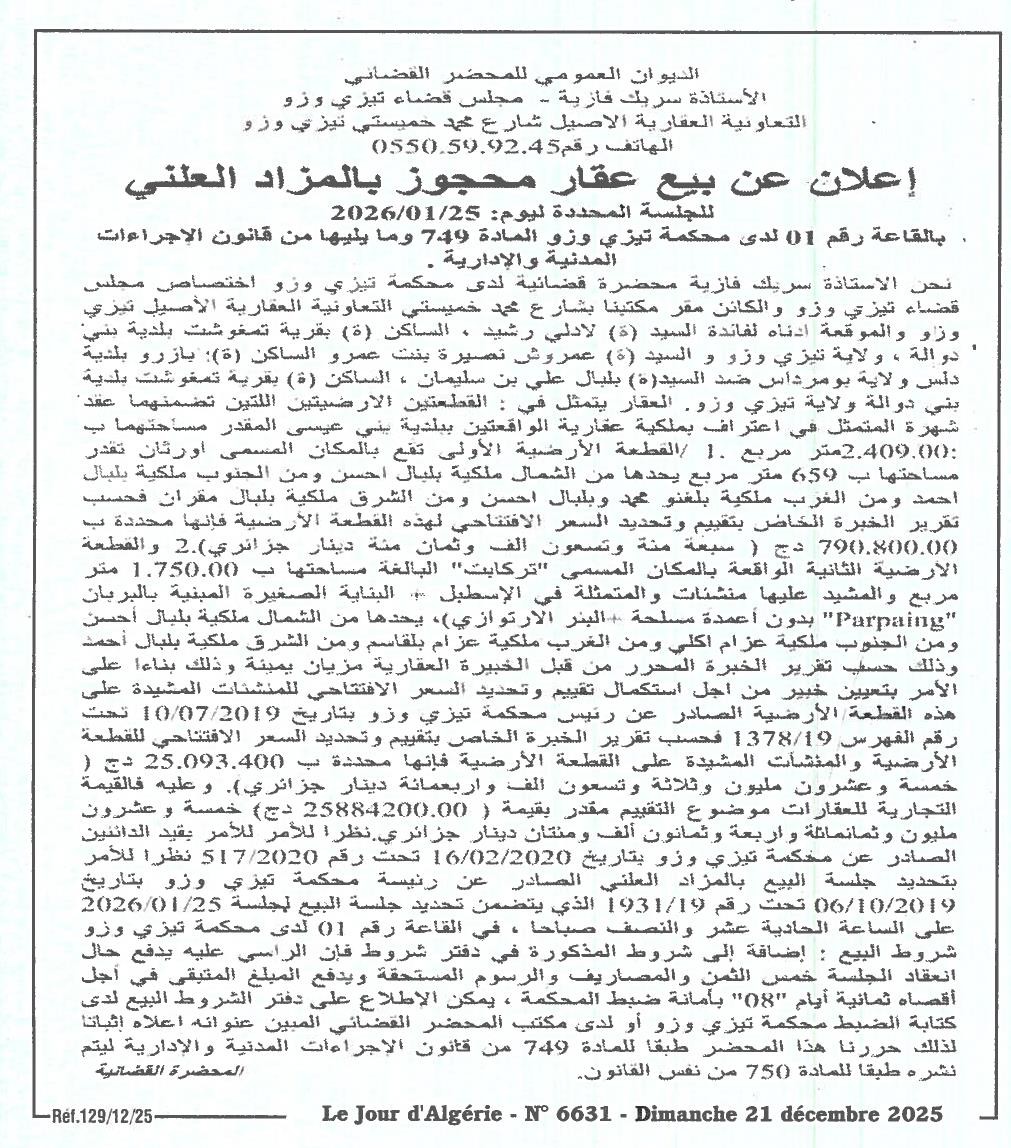 الديوان العمومي للمحضر القضائي
الأستاذة سريك فازية - مجلس قضاء تيزي وزو
التعاونية العقارية الاصيل شارع محمد خميستي تيزي وزو
الهاتف رقم0550.59.92.45
إعلان عن بيع عقار محجوز بالمزاد العلني
للجلسة المحددة ليوم: 2026/01/25
بالقاعة رقم 01 لدى محكمة تيزي وزو المادة 749 وما يليها من قانون الاجراءات
المدنية والإدارية .
نحن الاستاذة سريك فازية محضرة قضائية لدى محكمة تيزي وزو اختصاص مجلس
قضاء تيزي وزو والكائن مقر مكتبنا بشارع محمد خميستي التعاونية العقارية الأصيل تيزي
وزو والموقعة ادناه لفائدة السيد (ة) لادلي رشيد ، الساكن (ة) بقرية تمغوشت بلدية بني
دوالة ، ولاية تيزي وزو و السيد (ة) عمروش نصيرة بنت عمرو الساكن (ة): بازرو بلدية
دلس ولاية بومرداس ضد السيد(ة) بلبال علي بن سليمان ، الساكن (ة) بقرية تمغوشت بلدية
بني دوالة ولاية تيزي وزو. العقار يتمثل في : القطعتين الارضيتين اللتين تضمنهما عقد
شهرة المتمثل في اعتراف بملكية عقارية الواقعتين ببلدية بني عيسى المقدر مساحتهما ب
:2.409.00متر مربع .1 /القطعة الأرضية الأولى تقع بالمكان المسمى اورثان تقدر
مساحتها ب 659 متر مربع يحدها من الشمال ملكية بلبال احسن ومن الجنوب ملكية بلبال
احمد ومن الغرب ملكية بلغنو محمد وبلبال احسن ومن الشرق ملكية بلبال مقران فحسب
تقرير الخبرة الخاص بتقييم وتحديد السعر الافتتاحي لهذه القطعة الأرضية فإنها محددة ب
790.800.00 دج ( سبعة مئة وتسعون الف وثمان مئة دينار جزائري).2 والقطعة
الأرضية الثانية الواقعة بالمكان المسمى "تركابت" البالغة مساحتها ب 1.750.00 متر
مربع والمشيد عليها منشئات والمتمثلة في الإسطبل + البناية الصغيرة المبنية بالبربان
"Parpaing" بدون أعمدة مسلحة +البئر الارتوازي)، يحدها من الشمال ملكية بلبال أحسن
ومن الجنوب ملكية عزام اكلي ومن الغرب ملكية عزام بلقاسم ومن الشرق ملكية بلبال أحمد
وذلك حسب تقرير الخبرة المحرر من قبل الخبيرة العقارية مزيان يمينة وذلك بناءا على
الأمر بتعيين خبير من اجل استكمال تقييم وتحديد السعر الافتتاحي للمنشئات المشيدة على
هذه القطعة الأرضية الصادر عن رئيس محكمة تيزي وزو بتاريخ 10/07/2019 تحت
رقم الفهرس 1378/19 فحسب تقرير الخبرة الخاص بتقييم وتحديد السعر الافتتاحي للقطعة
الأرضية والمنشأت المشيدة على القطعة الأرضية فإنها محددة ب 25.093.400 دج (
خمسة و عشرون مليون وثلاثة وتسعون الف واربعمائة دينار جزائري). وعليه فالقيمة
التجارية للعقارات موضوع التقييم مقدر بقيمة ( 25884200.00 دج) خمسة و عشرون
مليون وثمانمائلة واربعة وثمانون ألف ومئتان دينار جزائري.نظرا للأمر للأمر بقيد الدائنين
الصادر عن محكمة تيزي وزو بتاريخ 16/02/2020 تحت رقم 517/2020 نظرا للأمر
بتحديد جلسة البيع بالمزاد العلني الصادر عن رئيسة محكمة تيزي وزو بتاريخ
06/10/2019 تحت رقم 1931/19 الذي يتضمن تحديد جلسة البيع لجلسة 2026/01/25
على الساعة الحادية عشر والنصف صباحا ، في القاعة رقم 01 لدى محكمة تيزي وزو
شروط البيع : إضافة إلى شروط المذكورة في دفتر شروط فإن الراسي عليه يدفع حال
انعقاد الجلسة خمس الثمن والمصاريف والرسوم المستحقة ويدفع المبلغ المتبقي في أجل
أقصاه ثمانية أيام "08" بأمانة ضبط المحكمة ، يمكن الإطلاع على دفتر الشروط البيع لدى
كتابة الضبط محكمة تيزي وزو أو لدى مكتب المحضر القضائي المبين عنوانه اعلاه إثباتا
لذلك حررنا هذا المحضر طبقا للمادة 749 من قانون الاجراءات المدنية والإدارية ليتم
نشره طبقا للمادة 750 من نفس القانون.
المحضرة القضائية
Réf.129/12/25
Le Jour d'Algérie - N° 6631 - Dimanche 21 décembre 2025